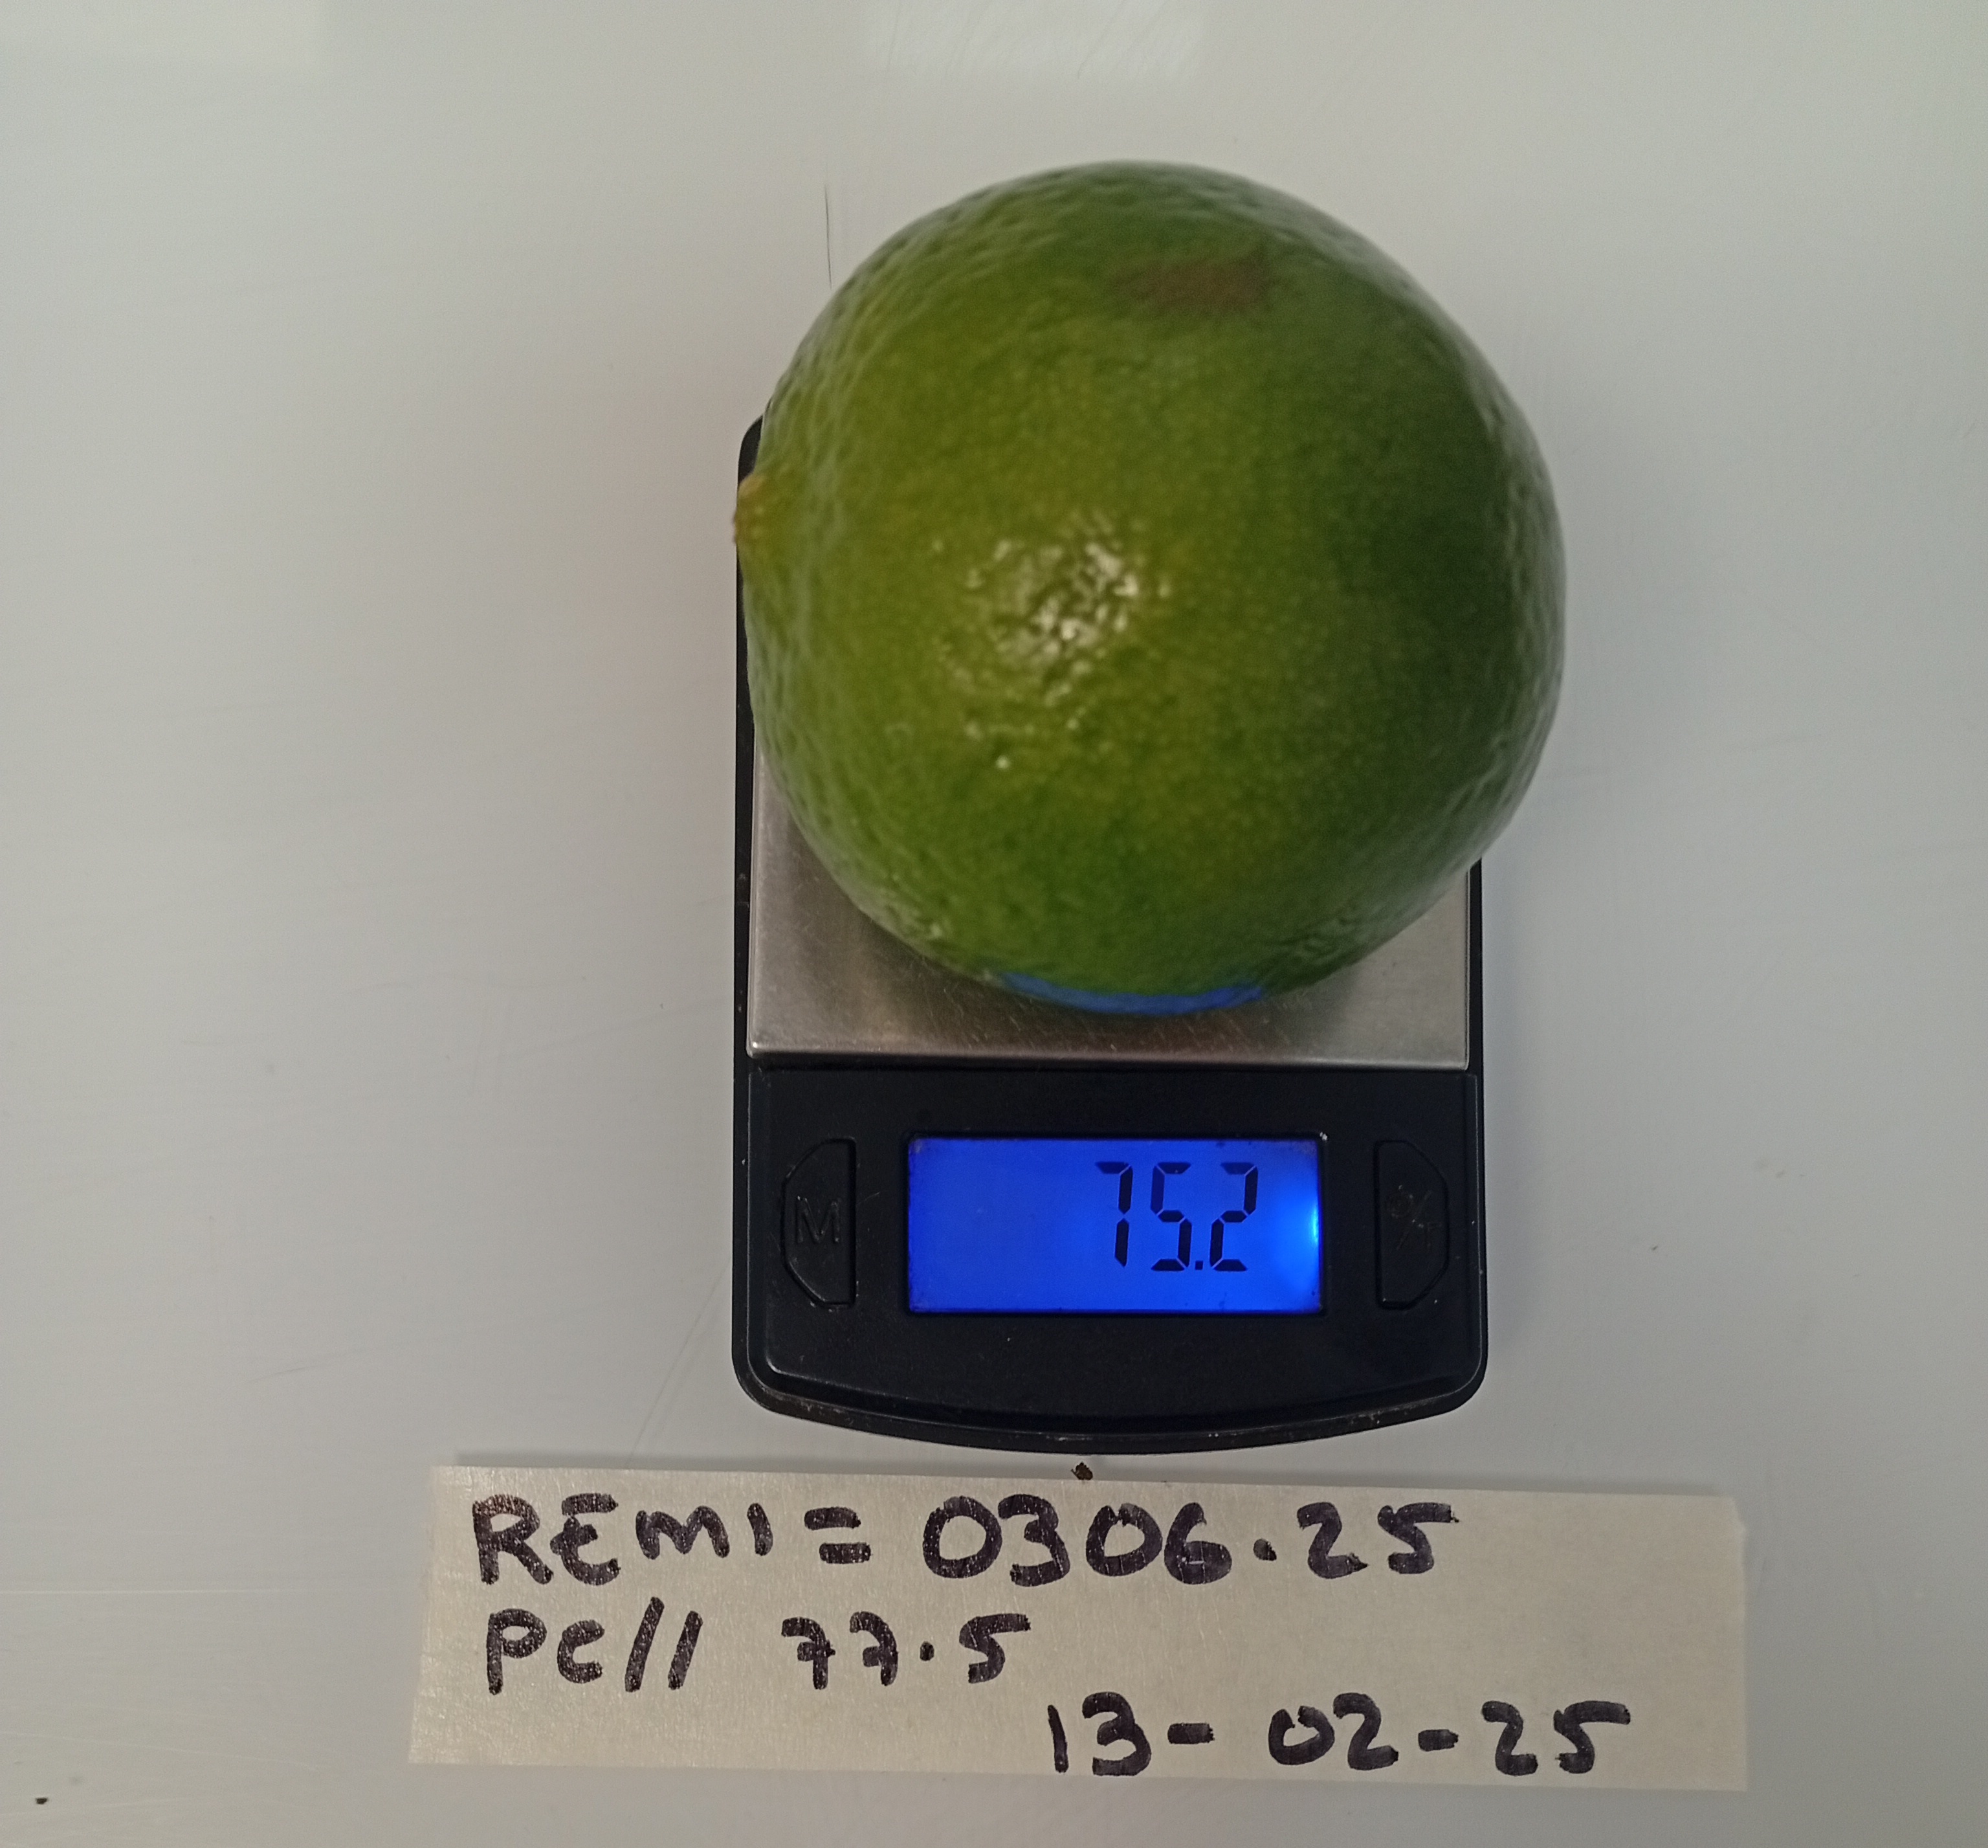 M
75.2
REMI = 0306.25
PC// 77.5
13-02-25